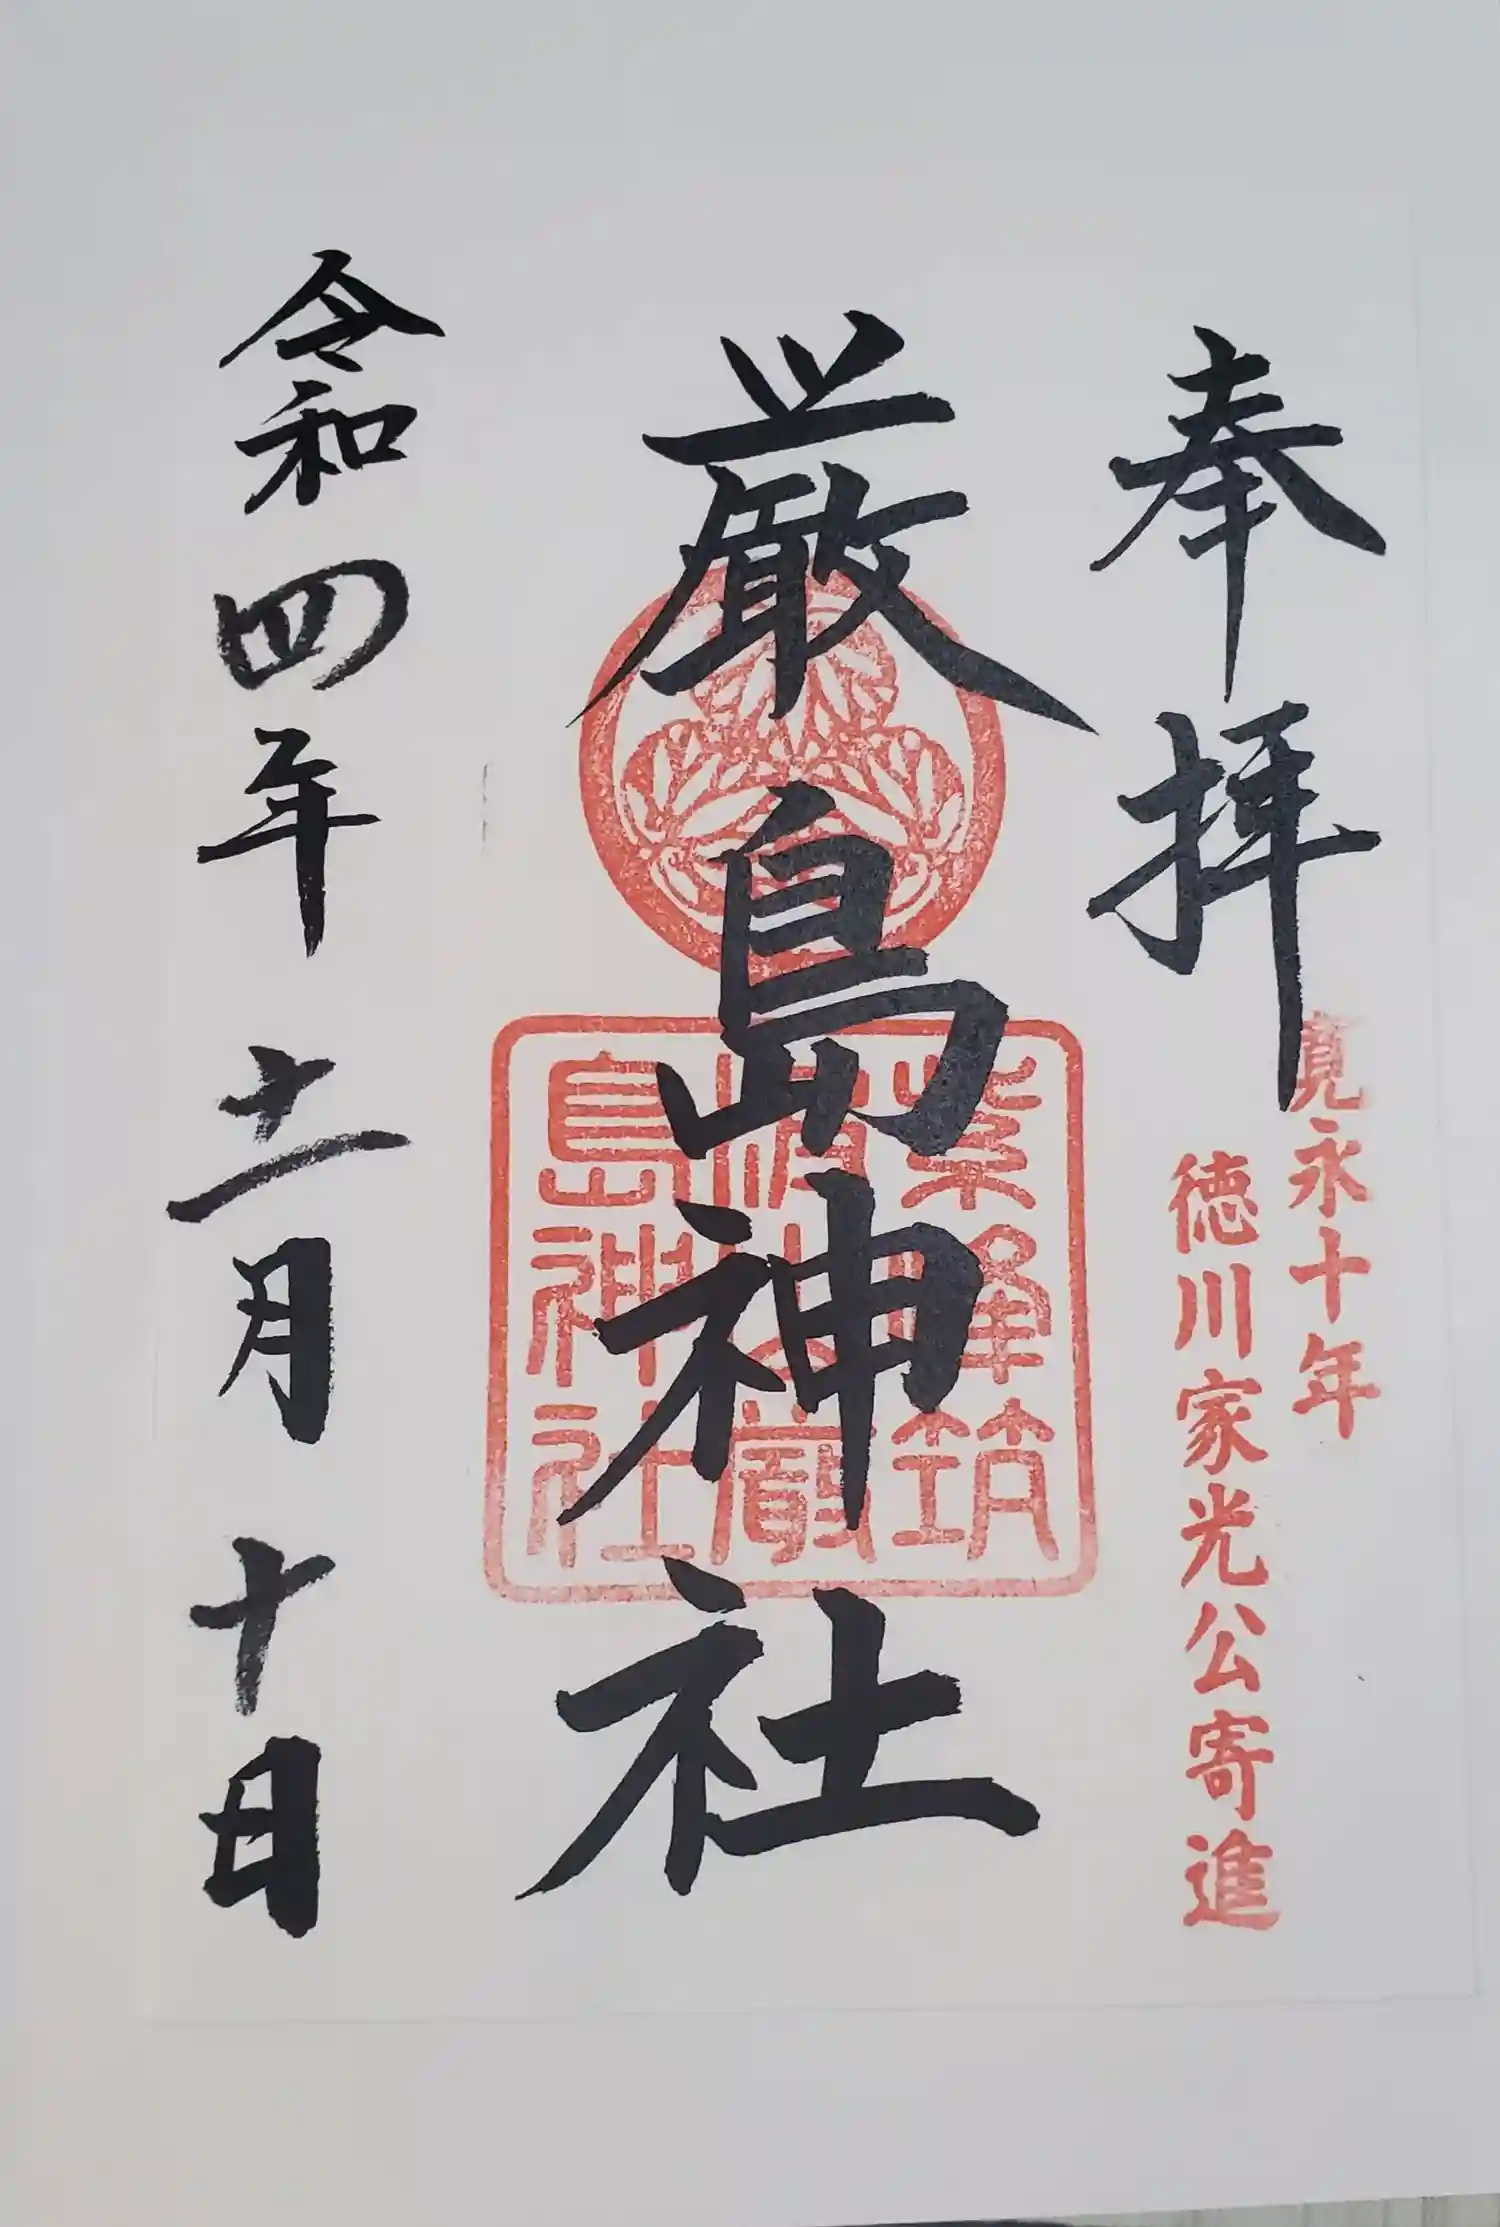 奉拝
寛永十年
徳川家光公寄進
厳島神社
紫峰筑
波山厳
島神社
令和四年十二月十日